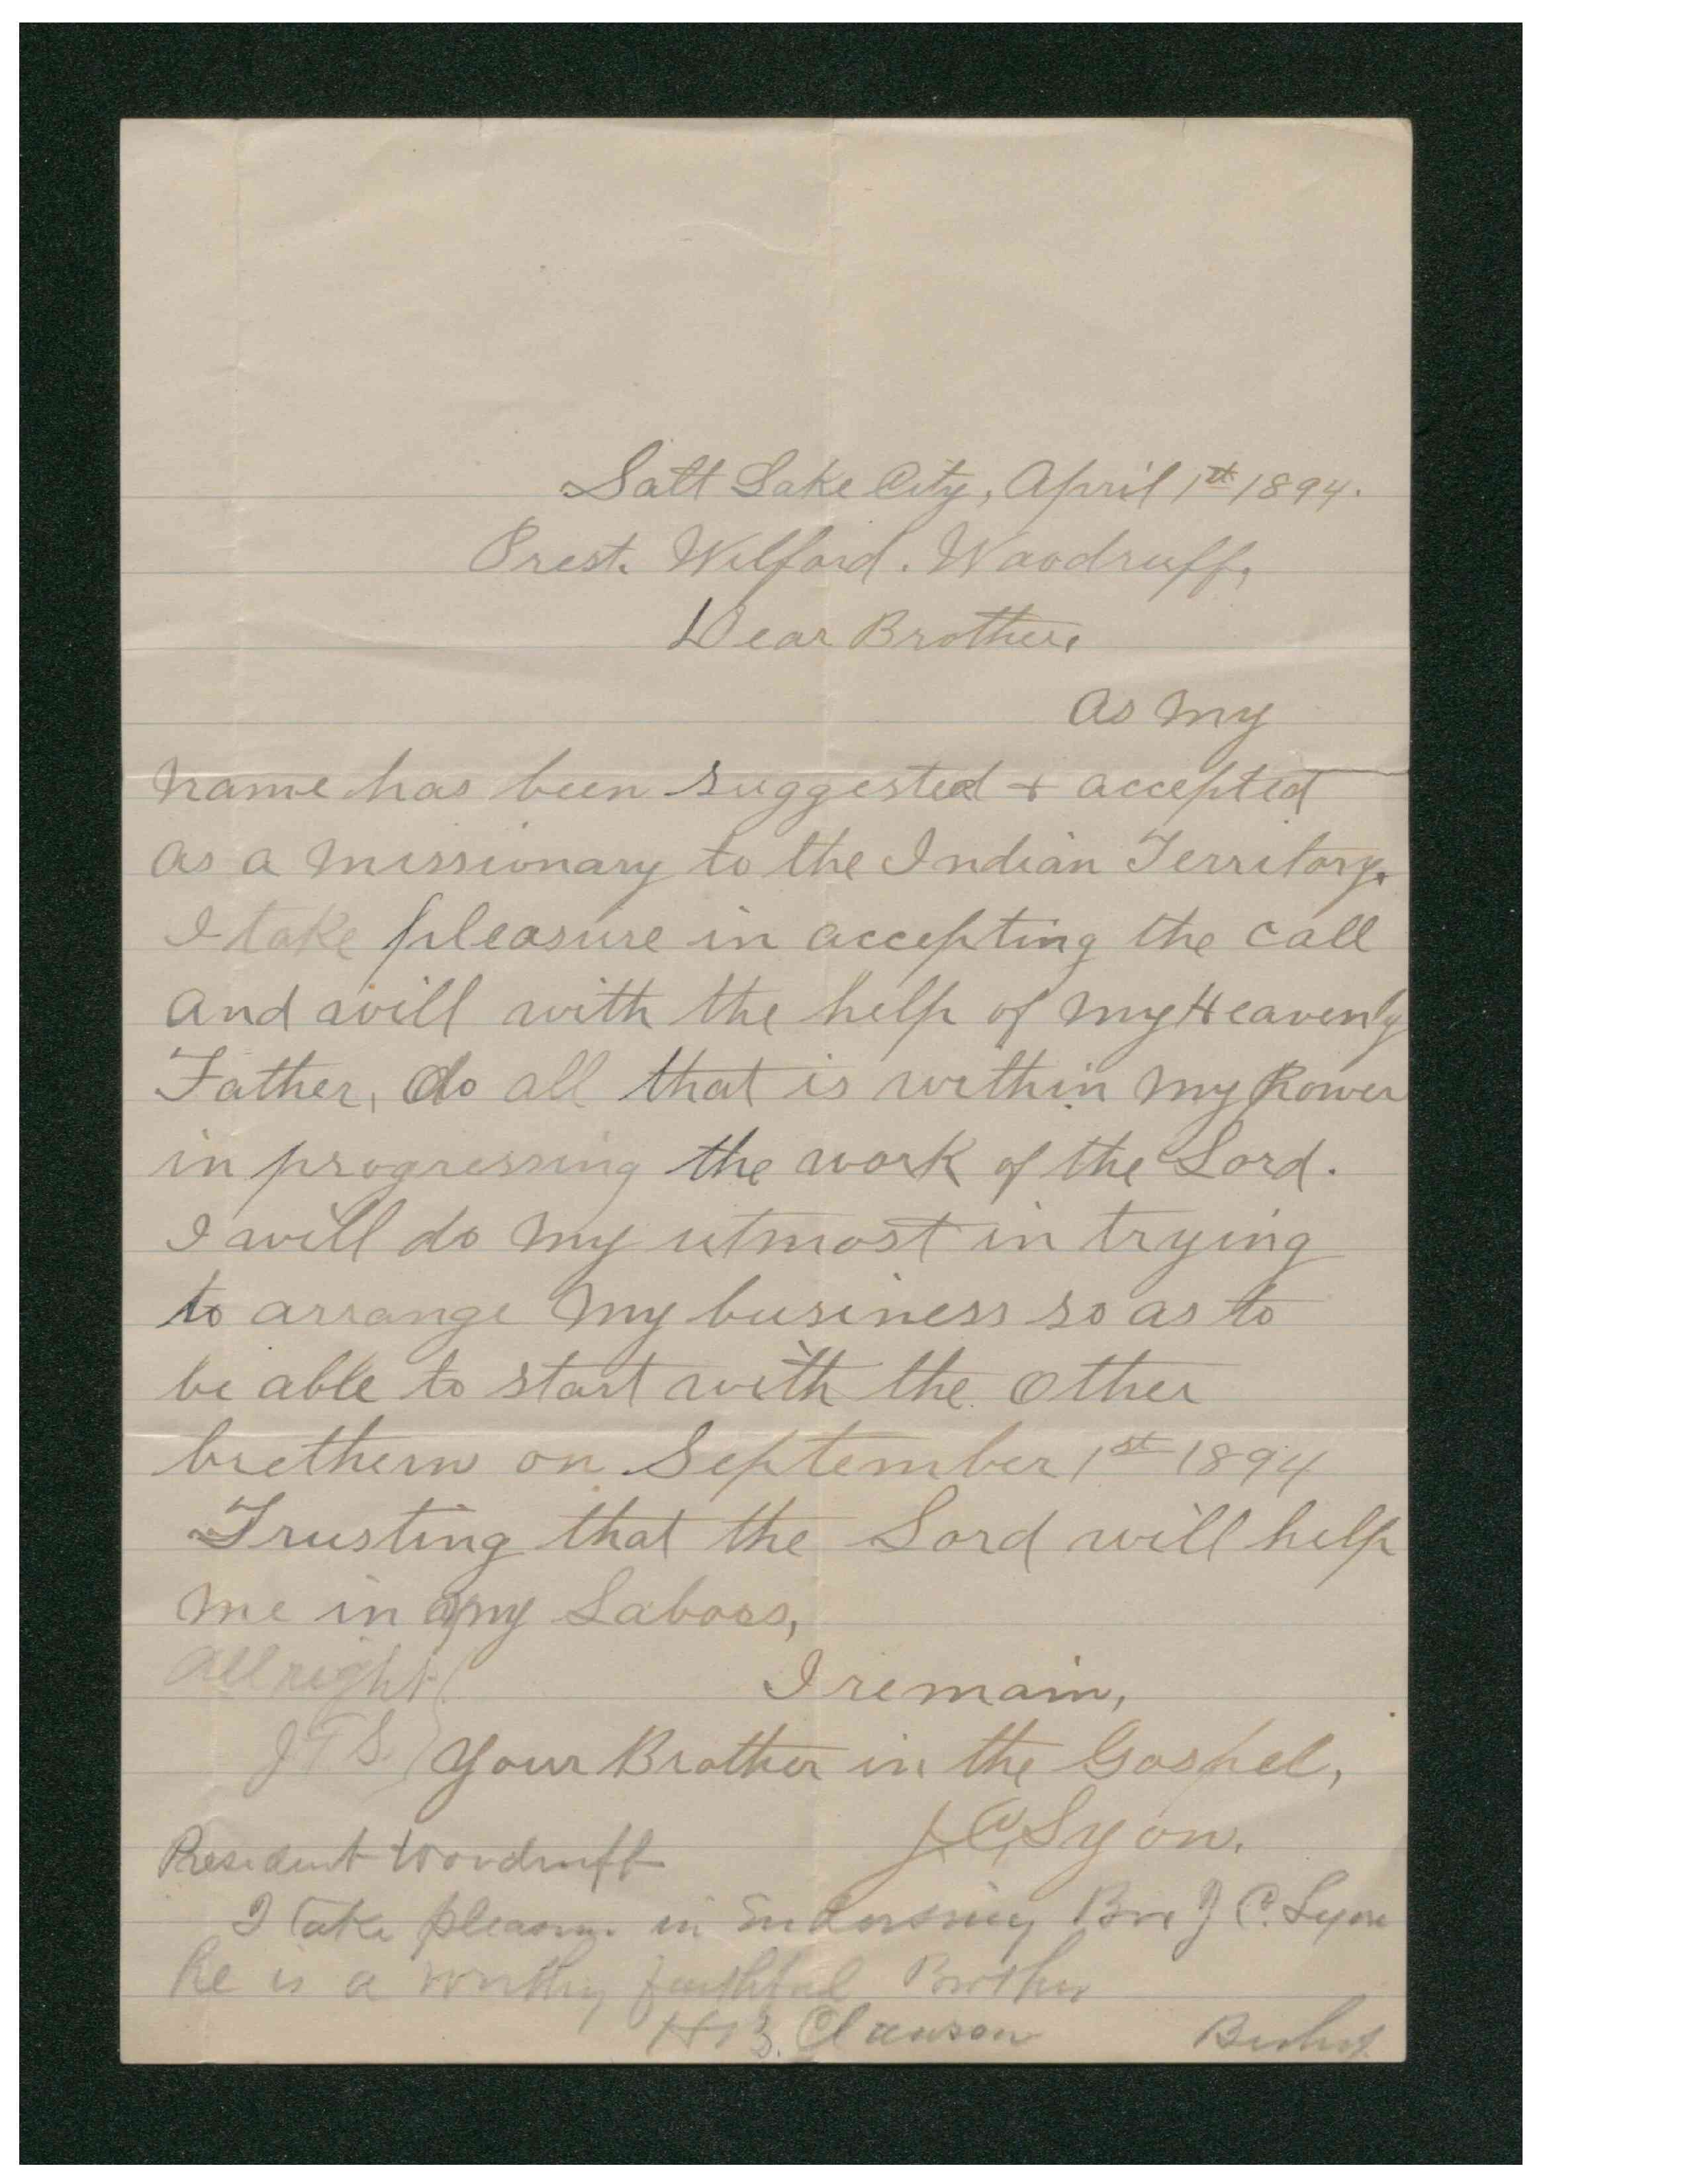 Salt Lake City, April 1st 1894.
Prest. Wilford. Woodruff,
Dear Brother,
As My
name has been suggested + accepted
as a missionary to the Indian Territory.
I take pleasure in accepting the call
and will with the help of my Heavenly
Father, do all that is within my Power
in progressing the work of the Lord.
I will do my utmost in trying
to arrange my business so as to
be able to start with the other
brethern on September 1st 1894
Trusting that the Lord will help
me in my Labors,
All right
I remain,
J F S.
Your Brother in the Gospel,
J. C. Lyon.
President Woodruff
I take pleasure in Endorsing Bro J C. Lyon
he is a worthy faithful Brother
H B. Clawson Bishop